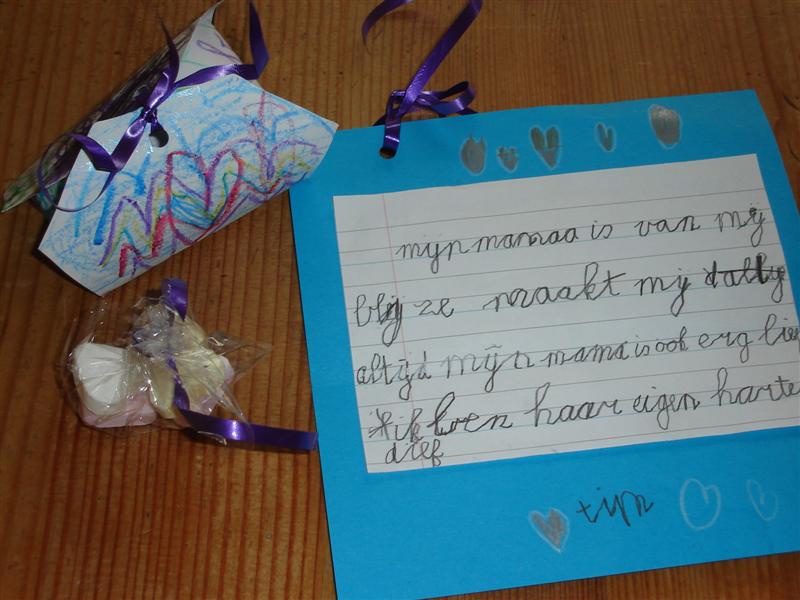 mijn mamaa is van mij
blij ze maakt mij
altijd mijn mama is ook erg lie
ik ben haar eigen harte
dief
tijn